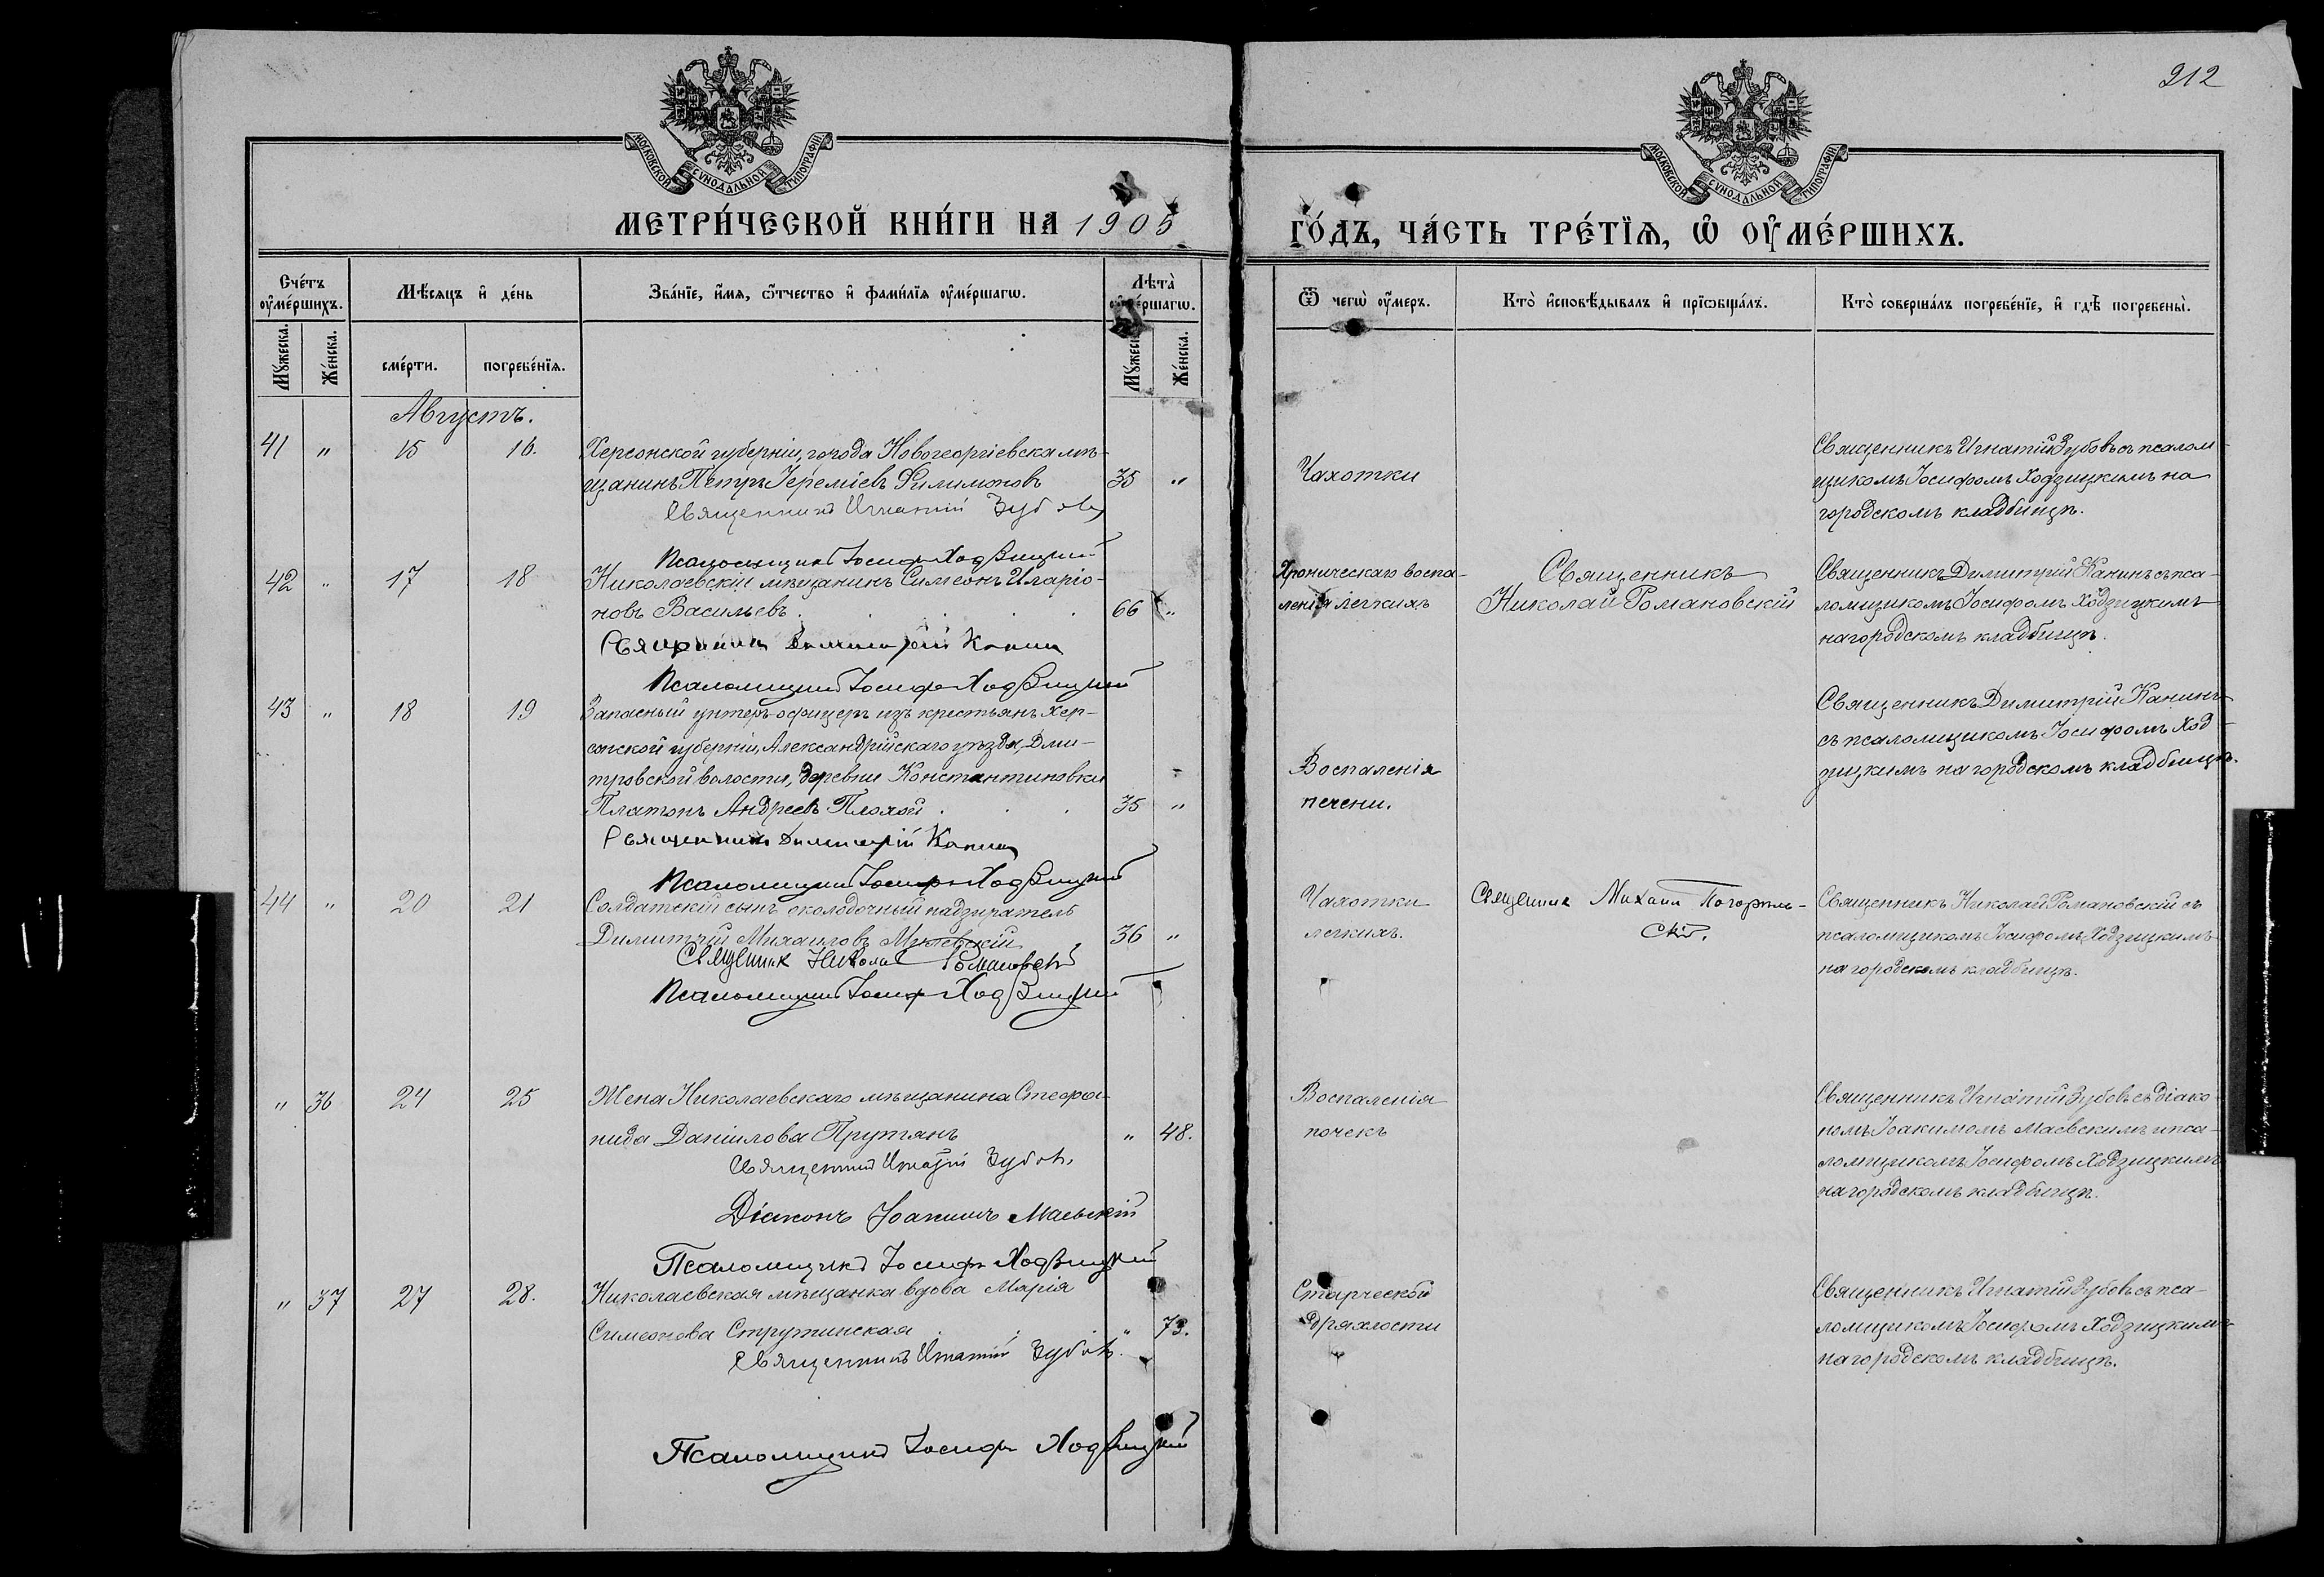 212
МОСКОВСКОЙ СѴНОДАЛЬНОЙ ТИПОГРАФІИ
МОСКОВСКОЙ СѴНОДАЛЬНОЙ ТИПОГРАФІИ
МЕТРИ́ЧЕСКОЙ КНИ́ГИ НА 1905
ГО́ДЪ, ЧА́СТЬ ТРЕ́ТЇѦ, Ѡ҆ ОУ҆МЕ́РШИХЪ.
Сче́тъ оу҆ме́ршихъ.
Мѣ́сяцъ и҆ де́нь
Зва́нїе, и҆́мя, ѻ҆́тчество и҆ фами́лїя оу҆ме́ршагѡ.
Лѣта̀ оу҆ме́ршагѡ.
Ѿ чегѡ̀ оу҆́меръ.
Кто̀ и҆сповѣ́дывалъ и҆ прїѡбща́лъ.
Кто̀ соверша́лъ погребе́нїе, и҆ гдѣ̀ погребены̀.
Мꙋ́жеска.
Же́нска.
сме́рти.
погребе́нїя.
Мꙋ́жеска.
Же́нска.
Августъ.
41 " 15 16. Херсонской губерніи, города Новогеоргіевска мѣ-
щанинъ Петръ Іереміевъ Филимоновъ 35 "
Священникъ Игнатій Зубовъ
Псаломщикъ Іосифъ Ходзицкій
Чахотки
Священникъ Игнатій Зубовъ съ псалом-
щикомъ Іосифомъ Ходзицкимъ на
городскомъ кладбищѣ.
42 " 17 18 Николаевскій мѣщанинъ Симеонъ Иларіо-
новъ Васильевъ 66 "
Священникъ Димитрій Канинъ
Псаломщикъ Іосифъ Ходзицкій
Хроническаго воспа-
ленія легкихъ
Священникъ
Николай Романовскій
Священникъ Димитрій Канинъ съ пса-
ломщикомъ Іосифомъ Ходзицкимъ
на городскомъ кладбищѣ.
43 " 18 19 Запасный унтеръ-офицеръ изъ крестьянъ Хер-
сонской губерніи, Александрійскаго уѣзда, Дми-
тровской волости, деревни Константиновки
Платонъ Андреевъ Плохой 35 "
Священникъ Димитрій Канинъ
Псаломщикъ Іосифъ Ходзицкій
Воспаленія
печени.
Священникъ Димитрій Канинъ
съ псаломщикомъ Іосифомъ Ход-
зицкимъ на городскомъ кладбищѣ.
44 " 20 21 Солдатскій сынъ околодочный надзиратель
Димитрій Михаиловъ 36 "
Священникъ Николай Романовскій
Псаломщикъ Іосифъ Ходзицкій
Чахотки
легкихъ.
Священникъ Михаилъ Погорѣль-
скій.
Священникъ Николай Романовскій съ
псаломщикомъ Іосифомъ Ходзицкимъ
на городскомъ кладбищѣ.
" 36 24 25 Жена Николаевскаго мѣщанина Стефа-
нида Даніилова Прутянъ " 48.
Священникъ Игнатій Зубовъ.
Діаконъ Іоакимъ Маевскій
Псаломщикъ Іосифъ Ходзицкій
Воспаленія
почекъ
Священникъ Игнатій Зубовъ съ діако-
номъ Іоакимомъ Маевскимъ и пса-
ломщикомъ Іосифомъ Ходзицкимъ
на городскомъ кладбищѣ.
" 37 27 28. Николаевская мѣщанка вдова Марія
Симеонова Струтинская " 73.
Священникъ Игнатій Зубовъ.
Псаломщикъ Іосифъ Ходзицкій
Старческой
дряхлости
Священникъ Игнатій Зубовъ съ пса-
ломщикомъ Іосифомъ Ходзицкимъ
на городскомъ кладбищѣ.